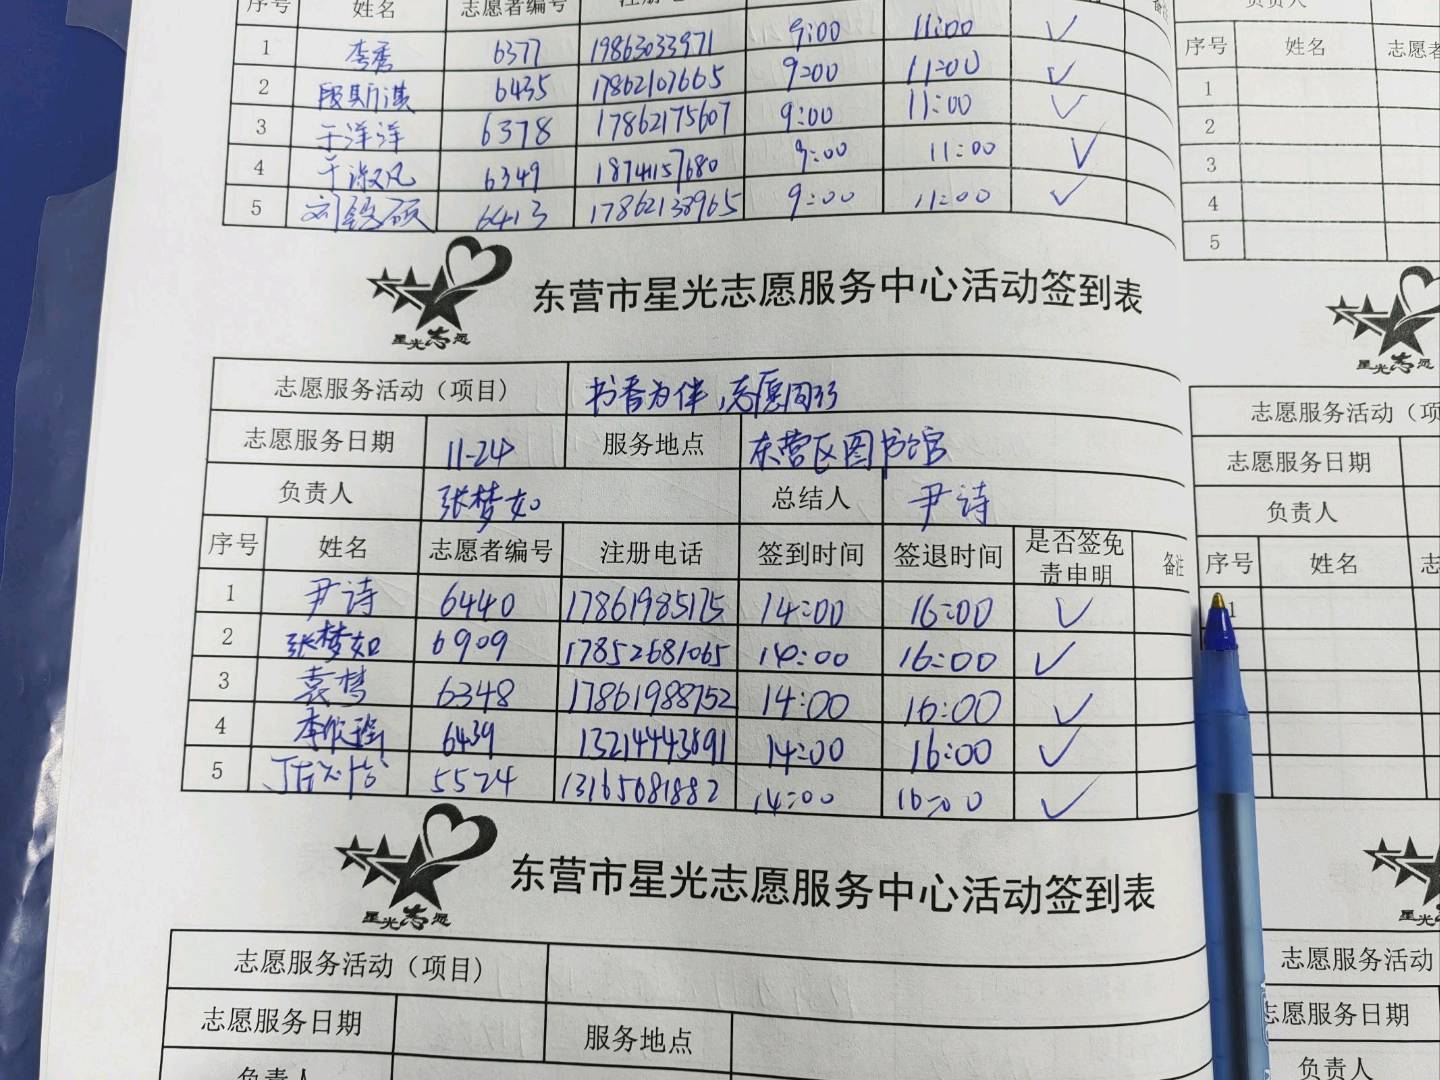 序号 姓名 志愿者编号
1 李秀 6377 19863033971 9:00 11:00 ✓
2 段斯淇 6435 17862107665 9:00 11:00 ✓
3 于洋洋 6378 17862175607 9:00 11:00 ✓
4 于淑凤 6349 18741157680 9:00 11:00 ✓
5 6413 17862138965 9:00 11:00 ✓
东营市星光志愿服务中心活动签到表
星光志愿
志愿服务活动（项目） 书香为伴，志愿同行
志愿服务日期 11-24 服务地点 东营区图书馆
负责人 张梦如 总结人 尹诗
序号 姓名 志愿者编号 注册电话 签到时间 签退时间 是否签免责申明 备注
1 尹诗 6440 17861985175 14:00 16:00 ✓
2 张梦如 6909 17852681065 14:00 16:00 ✓
3 袁梦 6348 17861988752 14:00 16:00 ✓
4 6439 13214443891 14:00 16:00 ✓
5 5524 13165081882 14:00 16:00 ✓
东营市星光志愿服务中心活动签到表
星光志愿
志愿服务活动（项目）
志愿服务日期 服务地点
负责人
负责人
序号 姓名 志愿者
1
2
3
4
5
星光志愿
志愿服务活动（项
志愿服务日期
负责人
序号 姓名 志
1
星光
志愿服务活动
志愿服务日期
负责人